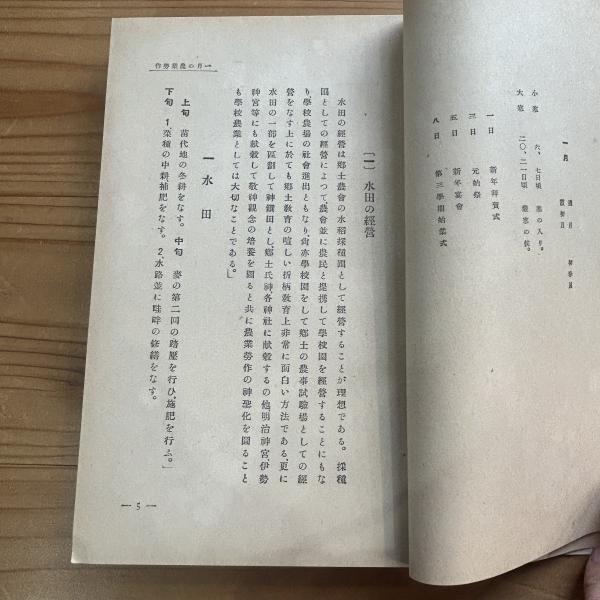 一月
小寒 六、七日頃 寒の入り。
大寒 二〇、二一日頃 嚴寒の候。
一日 新年拜賀式
三日 元始祭
五日 新年宴會
八日 第三學期始業式
一月の農業勞作
〔一〕 水田の經營
水田の經營は鄕土農會の水稻採種園として經營することが理想である。採種
園としての經營によつて農會並に農民と提携して學校園を經營することにもな
り、學校農場の社會進出ともなり尙亦學校園をして鄕土の農事試驗場としての經
營をなす上に於ても鄕土敎育の喧しい折柄敎育上非常に面白い方法である。更に
水田の一部を區劃して神饌田とし鄕土氏神、各神社に献穀するの他、明治神宮、伊勢
神宮等にも献穀して敬神觀念の培養を圖ると共に農業勞作の神聖化を圖ること
も學校農業としては大切なことである。」
一 水田
上旬 苗代地の冬耕をなす。 中旬 麥の第二回の踏壓を行ひ、施肥を行ふ。」
下旬 1、菜種の中耕補肥をなす。 2、水路並に畦畔の修繕をなす。
— 5 —